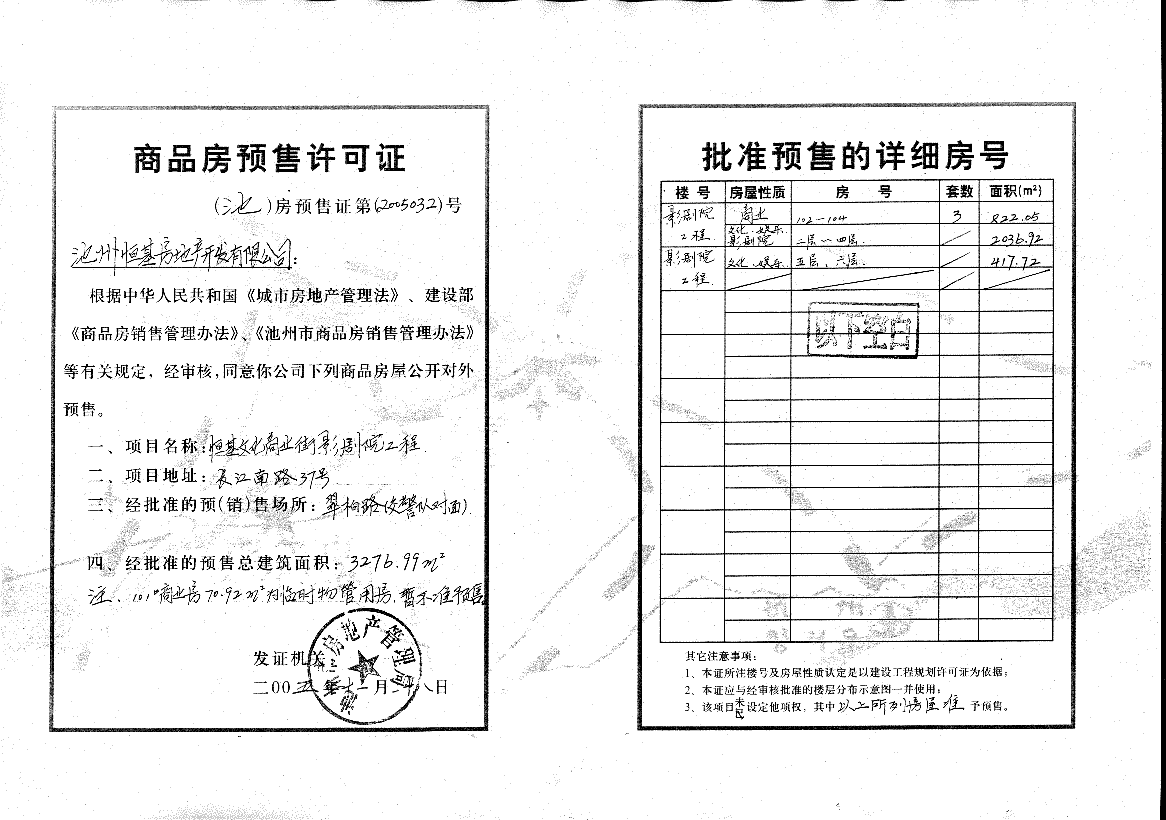 商品房预售许可证
(池)房预售证第(2005032)号
池州恒基房地产开发有限公司:
根据中华人民共和国《城市房地产管理法》、建设部
《商品房销售管理办法》、《池州市商品房销售管理办法》
等有关规定,经审核,同意你公司下列商品房屋公开对外
预售。
一、项目名称:恒基文化商业街影剧院工程.
二、项目地址:长江南路37号
三、经批准的预(销)售场所:翠柏路(交警队对面)
四、经批准的预售总建筑面积:3276.99m²
注、101#商业房70.92m²为临时物管用房,暂不准预售
发证机关
二00五年十一月二十八日
池州市房地产管理局
批准预售的详细房号
楼号 房屋性质 房号 套数 面积(m²)
影剧院 商业 102-104 3 822.05
工程. 文化、娱乐. 影剧院 二层—四层. 2036.92
影剧院 文化、娱乐. 五层、六层. 417.72
工程.
以下空白
其它注意事项:
1、本证所注楼号及房屋性质认定是以建设工程规划许可证为依据;
2、本证应与经审核批准的楼层分布示意图一并使用;
3、该项目未设定他项权,其中以上所列房屋准予预售。